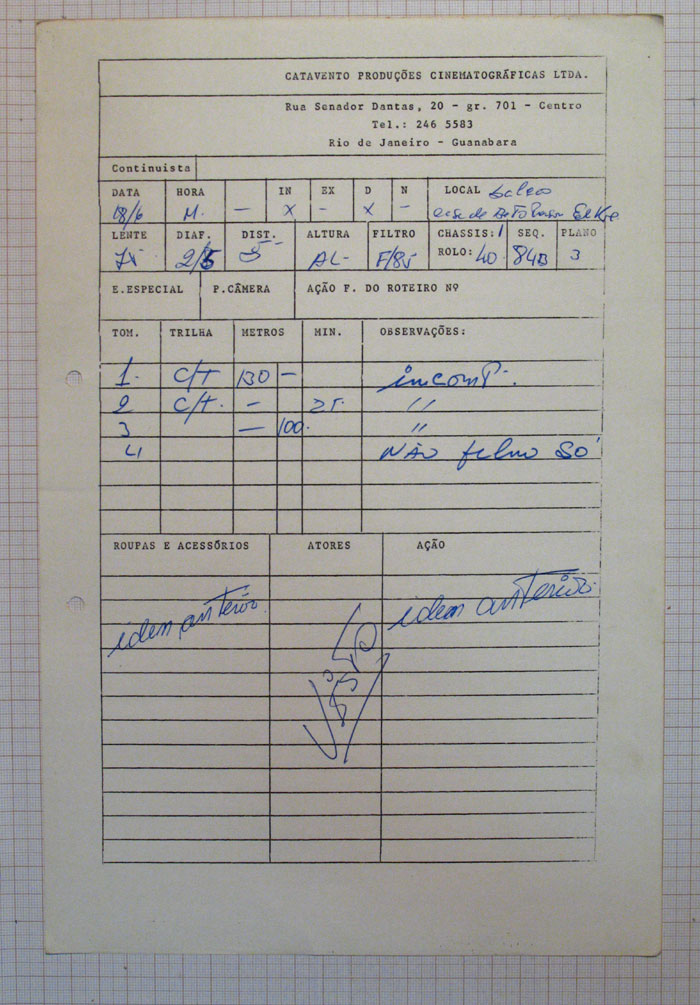 CATAVENTO PRODUÇÕES CINEMATOGRÁFICAS LTDA.
Rua Senador Dantas, 20 - gr. 701 - Centro
Tel.: 246 5583
Rio de Janeiro - Guanabara
Continuista
DATA HORA IN EX D N LOCAL
18/6 M. - X - X - casa de
LENTE DIAF. DIST. ALTURA FILTRO CHASSIS: 1 SEQ. PLANO
AL- F/85 ROLO: 40 84B 3
E.ESPECIAL P.CÂMERA AÇÃO F. DO ROTEIRO Nº
TOM. TRILHA METROS MIN. OBSERVAÇÕES:
1. C/T 130 - incomp.
2 C/T. - 25. "
3 - 100. "
4 NÃO só
ROUPAS E ACESSÓRIOS ATORES AÇÃO
idem anterior. idem anterior.